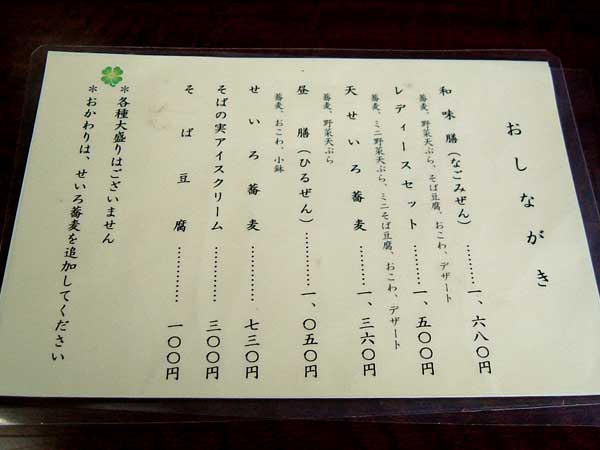 おしながき
和味膳（なごみぜん）…………一、六八〇円
蕎麦、野菜天ぷら、そば豆腐、おこわ、デザート
レディースセット…………一、五〇〇円
蕎麦、ミニ野菜天ぷら、ミニそば豆腐、おこわ、デザート
天せいろ蕎麦…………一、三六〇円
蕎麦、野菜天ぷら
昼膳（ひるぜん）…………一、〇五〇円
蕎麦、おこわ、小鉢
せいろ蕎麦…………七三〇円
そばの実アイスクリーム…………三〇〇円
そば豆腐…………一〇〇円
＊各種大盛りはございません
＊おかわりは、せいろ蕎麦を追加してください